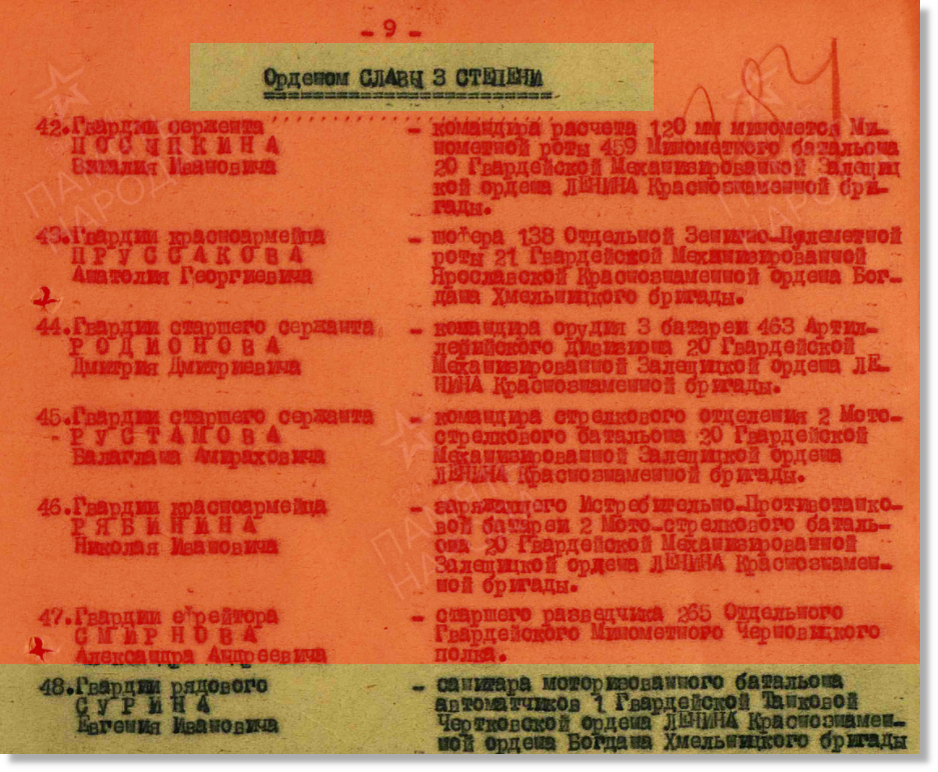 - 9 -
284
Орденом СЛАВЫ 3 СТЕПЕНИ
42. Гвардии сержанта - командира расчета 120 мм миномета Ми-
ПОСЫПКИНА нометной роты 459 Минометного батальона
Виталия Ивановича 20 Гвардейской Механизированной Залещиц
кой ордена ЛЕНИНА Краснознаменной бри-
гады.
43. Гвардии красноармейца - шофера 138 Отдельной Зенитно-Пулеметной
ПРУССАКОВА роты 21 Гвардейской Механизированной
Анатолия Георгиевича Ярославской Краснознаменной ордена Бог-
дана Хмельницкого бригады.
44. Гвардии старшего сержанта - командира орудия 3 батареи 463 Артил-
РОДИОНОВА лерийского дивизиона 20 Гвардейской
Дмитрия Дмитриевича Механизированной Залещицкой ордена ЛЕ-
НИНА Краснознаменной бригады.
45. Гвардии старшего сержанта - командира стрелкового отделения 2 Мото-
РУСТАМОВА стрелкового батальона 20 Гвардейской
Балаглана Амираховича Механизированной Залещицкой ордена
ЛЕНИНА Краснознаменной бригады.
46. Гвардии красноармейца - заряжающего Истребительно-Противотанко-
РЯБИНИНА вой батареи 2 Мото-стрелкового баталь-
Николая Ивановича она 20 Гвардейской Механизированной
Залещицкой ордена ЛЕНИНА Краснознамен-
ной бригады.
47. Гвардии ефрейтора - старшего разведчика 265 Отдельного
СМИРНОВА Гвардейского Минометного Черновицкого
Александра Андреевича полка.
48. Гвардии рядового - санитара моторизованного батальона
СУРИНА автоматчиков 1 Гвардейской Танковой
Евгения Ивановича Чертковской ордена ЛЕНИНА Краснознамен-
ной ордена Богдана Хмельницкого бригады
ПАМЯТЬ
НАРОДА
ПАМЯТЬ
НАРОДА
ПАМЯТЬ
НАРОДА